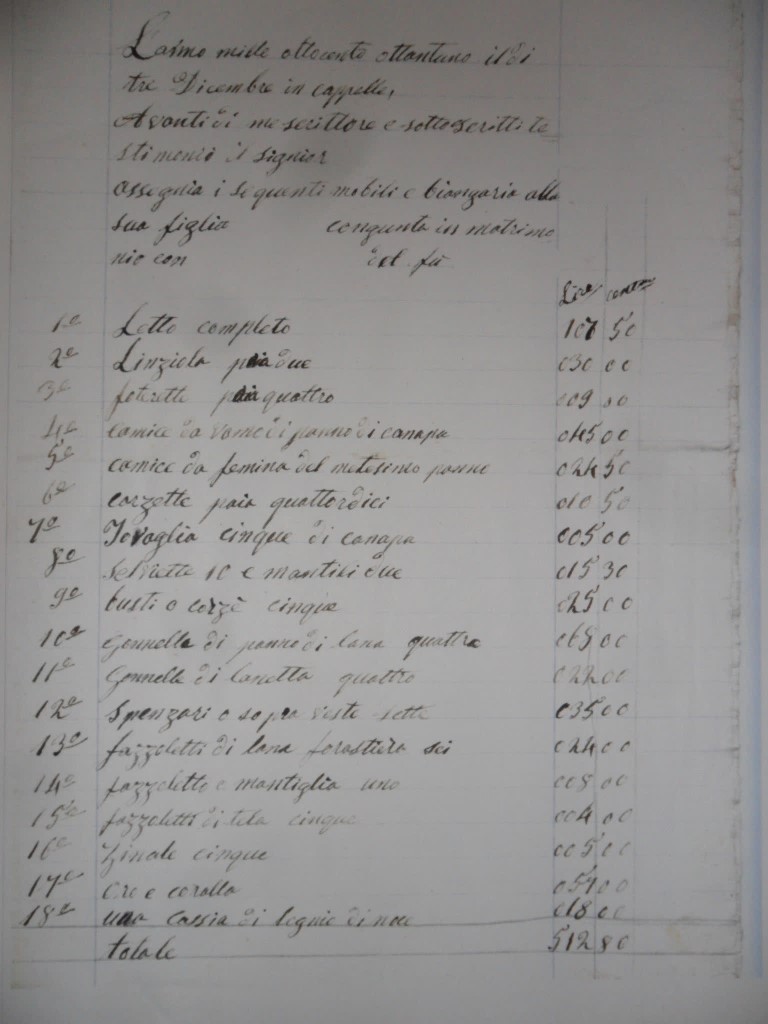 L'anno mille ottocento ottantuno il di
tre Dicembre in cappelle,
Avanti di me scrittore e sotto scritti te
stimonii il signior
assegnia i seguenti mobili e biangaria alla
sua figlia congunta in matrimo
nio con del fu
Lire centm
1o Letto completo 107 50
2o Linziola paia due 030 00
3o foterette paia quattro 009 00
4o camice da vomo di panno di canapa 045 00
5o camice da femina del metesimo panno 024 50
6o cazzette paia quattordici 010 50
7o Tovaglia cinque di canapa 005 00
8o Selviette 10 e mantili due 015 30
9o busti o corzè cinque 025 00
10o Gonnelle di panno di lana quattro 068 00
11o Gonnelle di lanetta quattro 022 00
12o Spenzari o sopra veste sette 035 00
13o fazzoletti di lana forastiera sei 024 00
14o fazzoletto o mantiglia uno 008 00
15o fazzoletti di tela cinque 004 00
16o Zinale cinque 005 00
17o Oro e coralla 057 00
18o una cassia di legnie di noce 018 00
totale 512 80